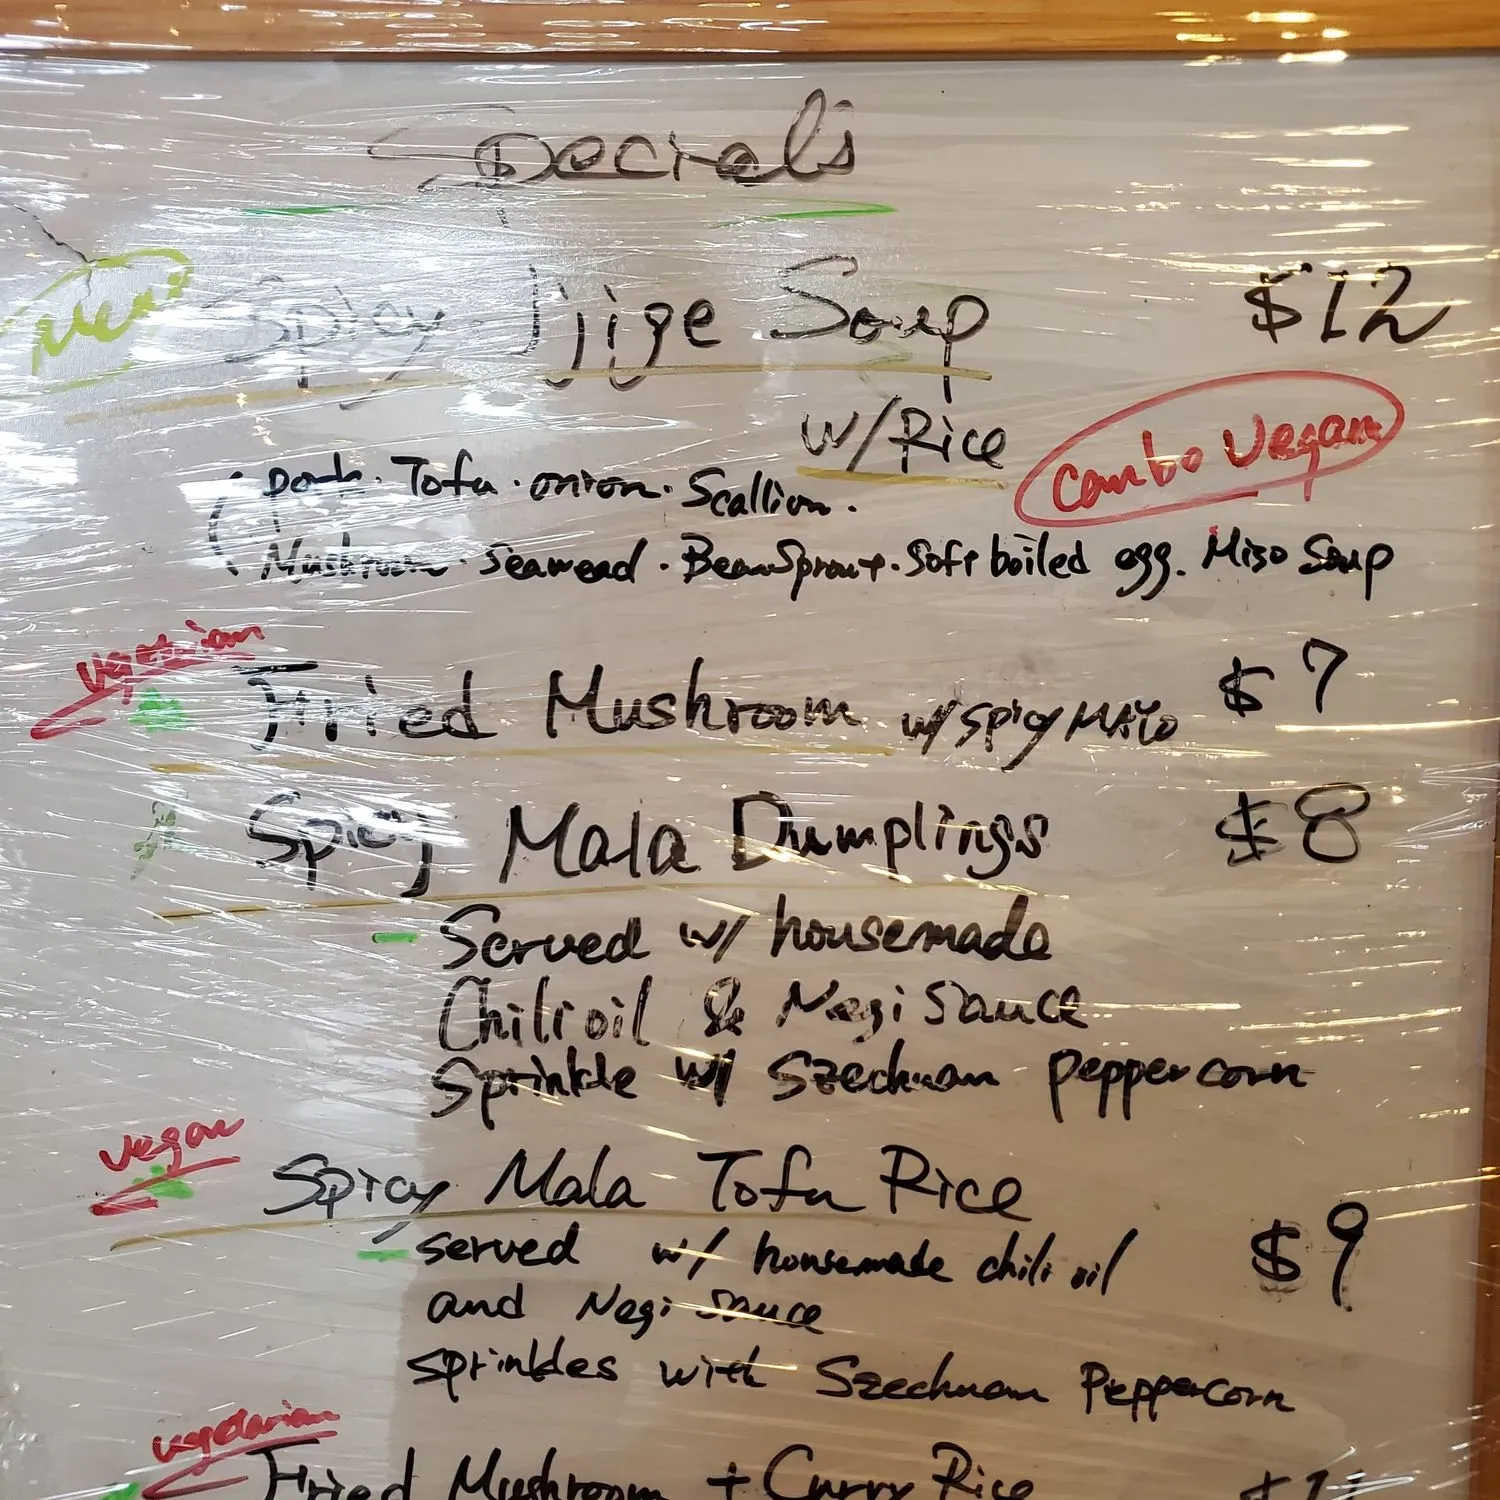 Specials
New! Spicy Jjige Soup $12
w/Rice
can be Vegan
(pork. Tofu. onion. Scallion.
Mushroom. Seaweed. BeanSprout. Soft boiled egg. Miso Soup
vegetarian
Fried Mushroom w/ Spicy MAYO $7
Spicy Mala Dumplings $8
- Served w/ housemade
Chili oil & Negi Sauce
Sprinkle w/ Szechuan peppercorn
vegan
Spicy Mala Tofu Rice
- served w/ housemade chili oil $9
and Negi sauce
sprinkles with Szechuan Peppercorn
vegetarian
Fried Mushroom + Curry Rice